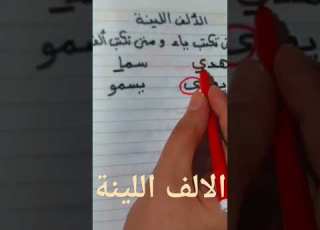 الألف اللينة
تكتب ياء و متى تكتب ألف
هدي سما
يسمو
الالف اللينة